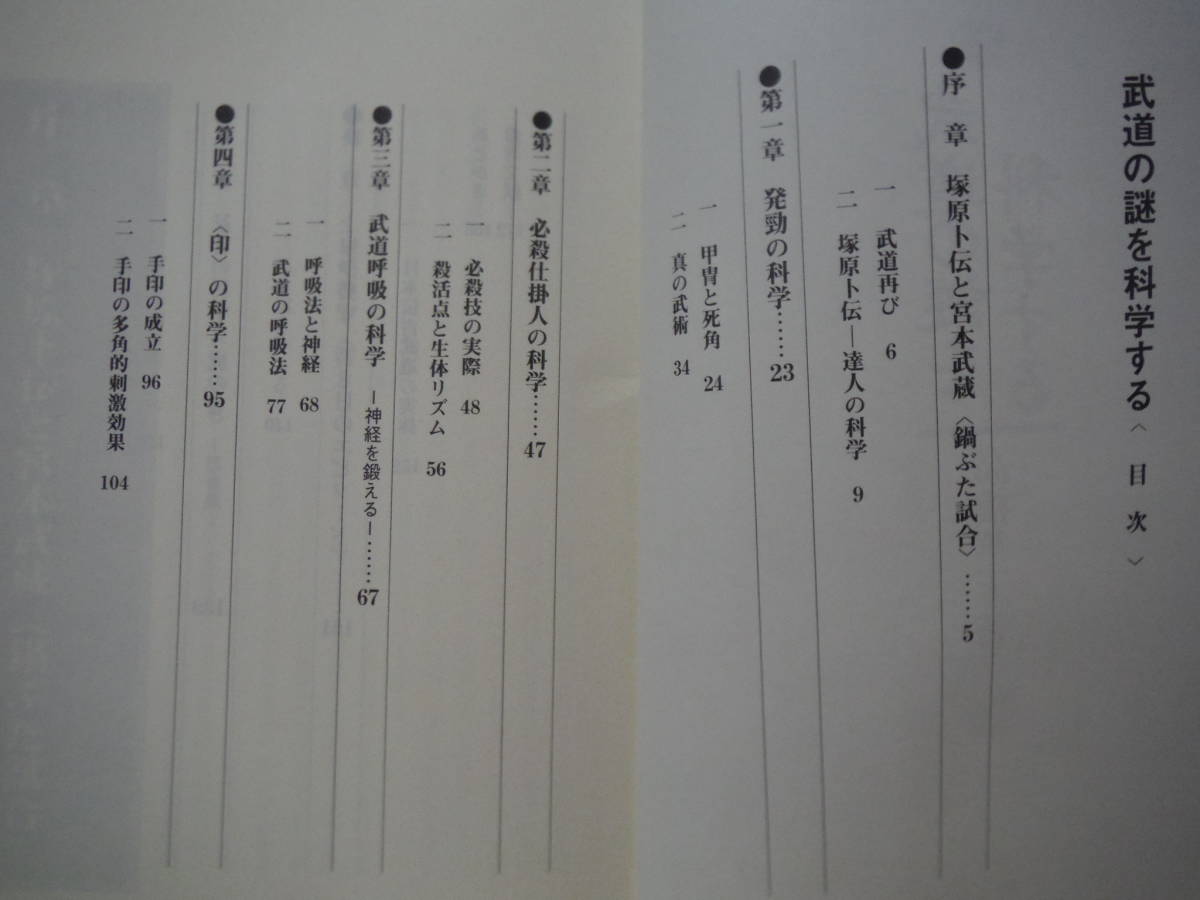 武道の謎を科学する〈目次〉
●序章 塚原卜伝と宮本武蔵〈鍋ぶた試合〉……5
一 武道再び 6
二 塚原卜伝―達人の科学 9
●第一章 発勁の科学……23
一 甲冑と死角 24
二 真の武術 34
●第二章 必殺仕掛人の科学……47
一 必殺技の実際 48
二 殺活点と生体リズム 56
●第三章 武道呼吸の科学 ―神経を鍛える―……67
一 呼吸法と神経 68
二 武道の呼吸法 77
●第四章 〈印〉の科学……95
一 手印の成立 96
二 手印の多角的刺激効果 104